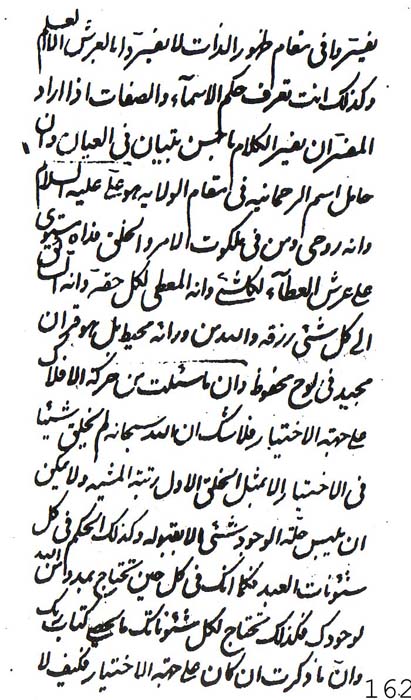 تفسيره فى مقام ظهور الذات لا تغير و انا العرش الا العلم
و كذلك انت تعرف حكم الاسمآء و الصفات اذا اراد
المفسّر ان يفسّر الكلام باحسن تبيان فى العيان و ان
حامل اسم الرحمانيه فى مقام الولايه هو علي عليه السلام
و انه روحى و من فى ملكوت الامر و الخلق فداه يستوى
على عرش العطآء لكلشئ و انه المعطى لكل حقه و انه
الى كل شئ رزقه و الله من ورائه محيط بل هو قران
مجيد فى لوح محفوظ و ان ما سئلت من حركة الافلاك
على جهة الاختيار فلا شك ان الله سبحانه لم يخلق شيئا
فى الاختيار الا بمثل الخلق الاول رتبة المشيه و لا يمكن
ان يلبس حلّة الوجود شئ الا بقبوله و كذلك الحكم فى كل
شئونات العبد فكما انك فى كل حين تحتاج بمدد من الله
لوجودك فكذلك تحتاج لكل شئوناتك ما يحصى كتاب ربك
و ان ما ذكرت ان كان على جهة الاختيار فكيف لا
162